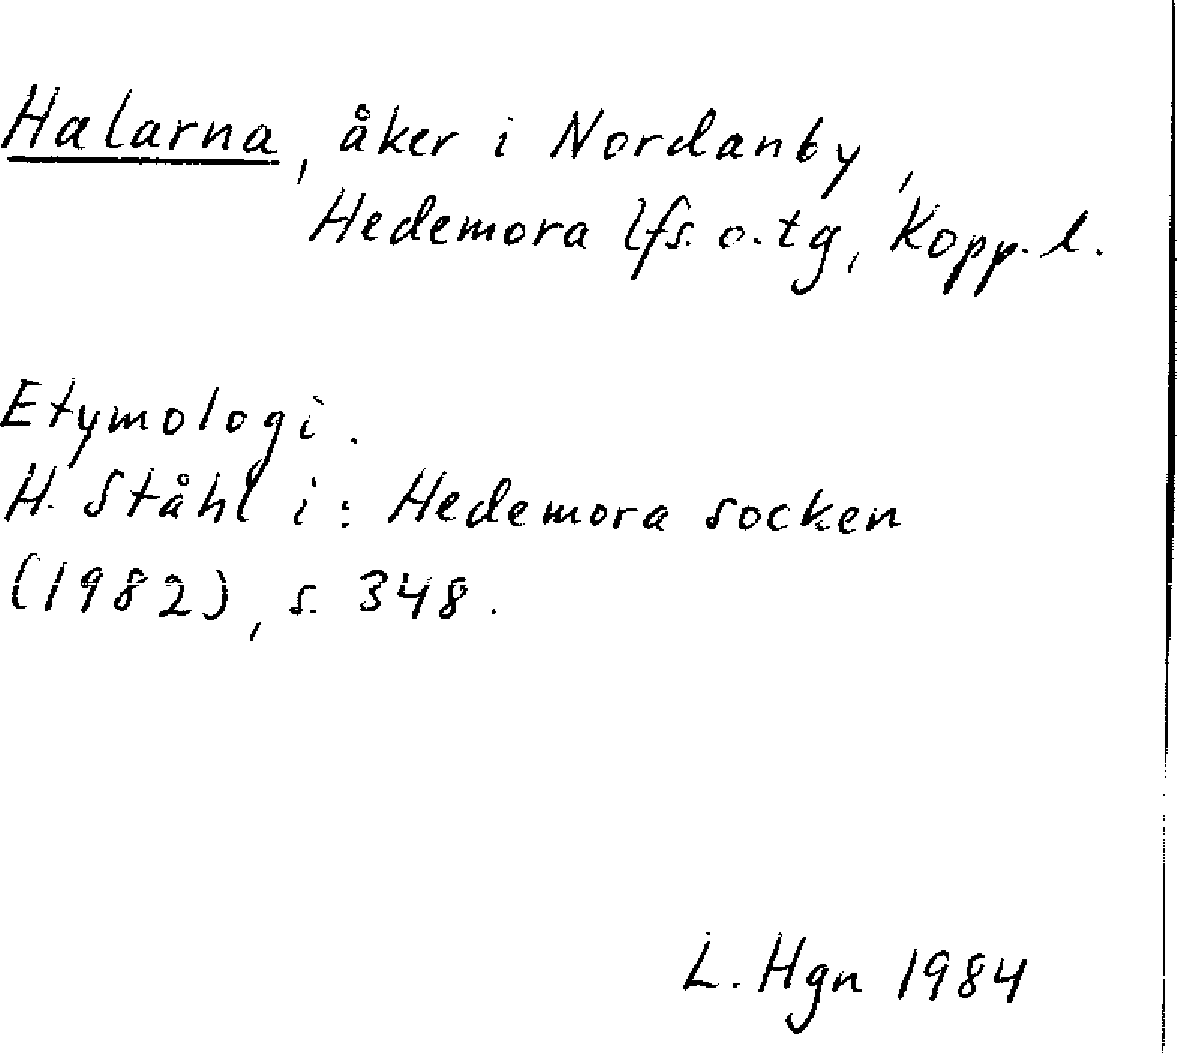 Halarna, åker i Nordanby,
Hedemora lfs. o. tg, Kopp. l.
Etymologi.
H. Ståhl i: Hedemora socken
(1982), s. 348.
L. Hgn 1984